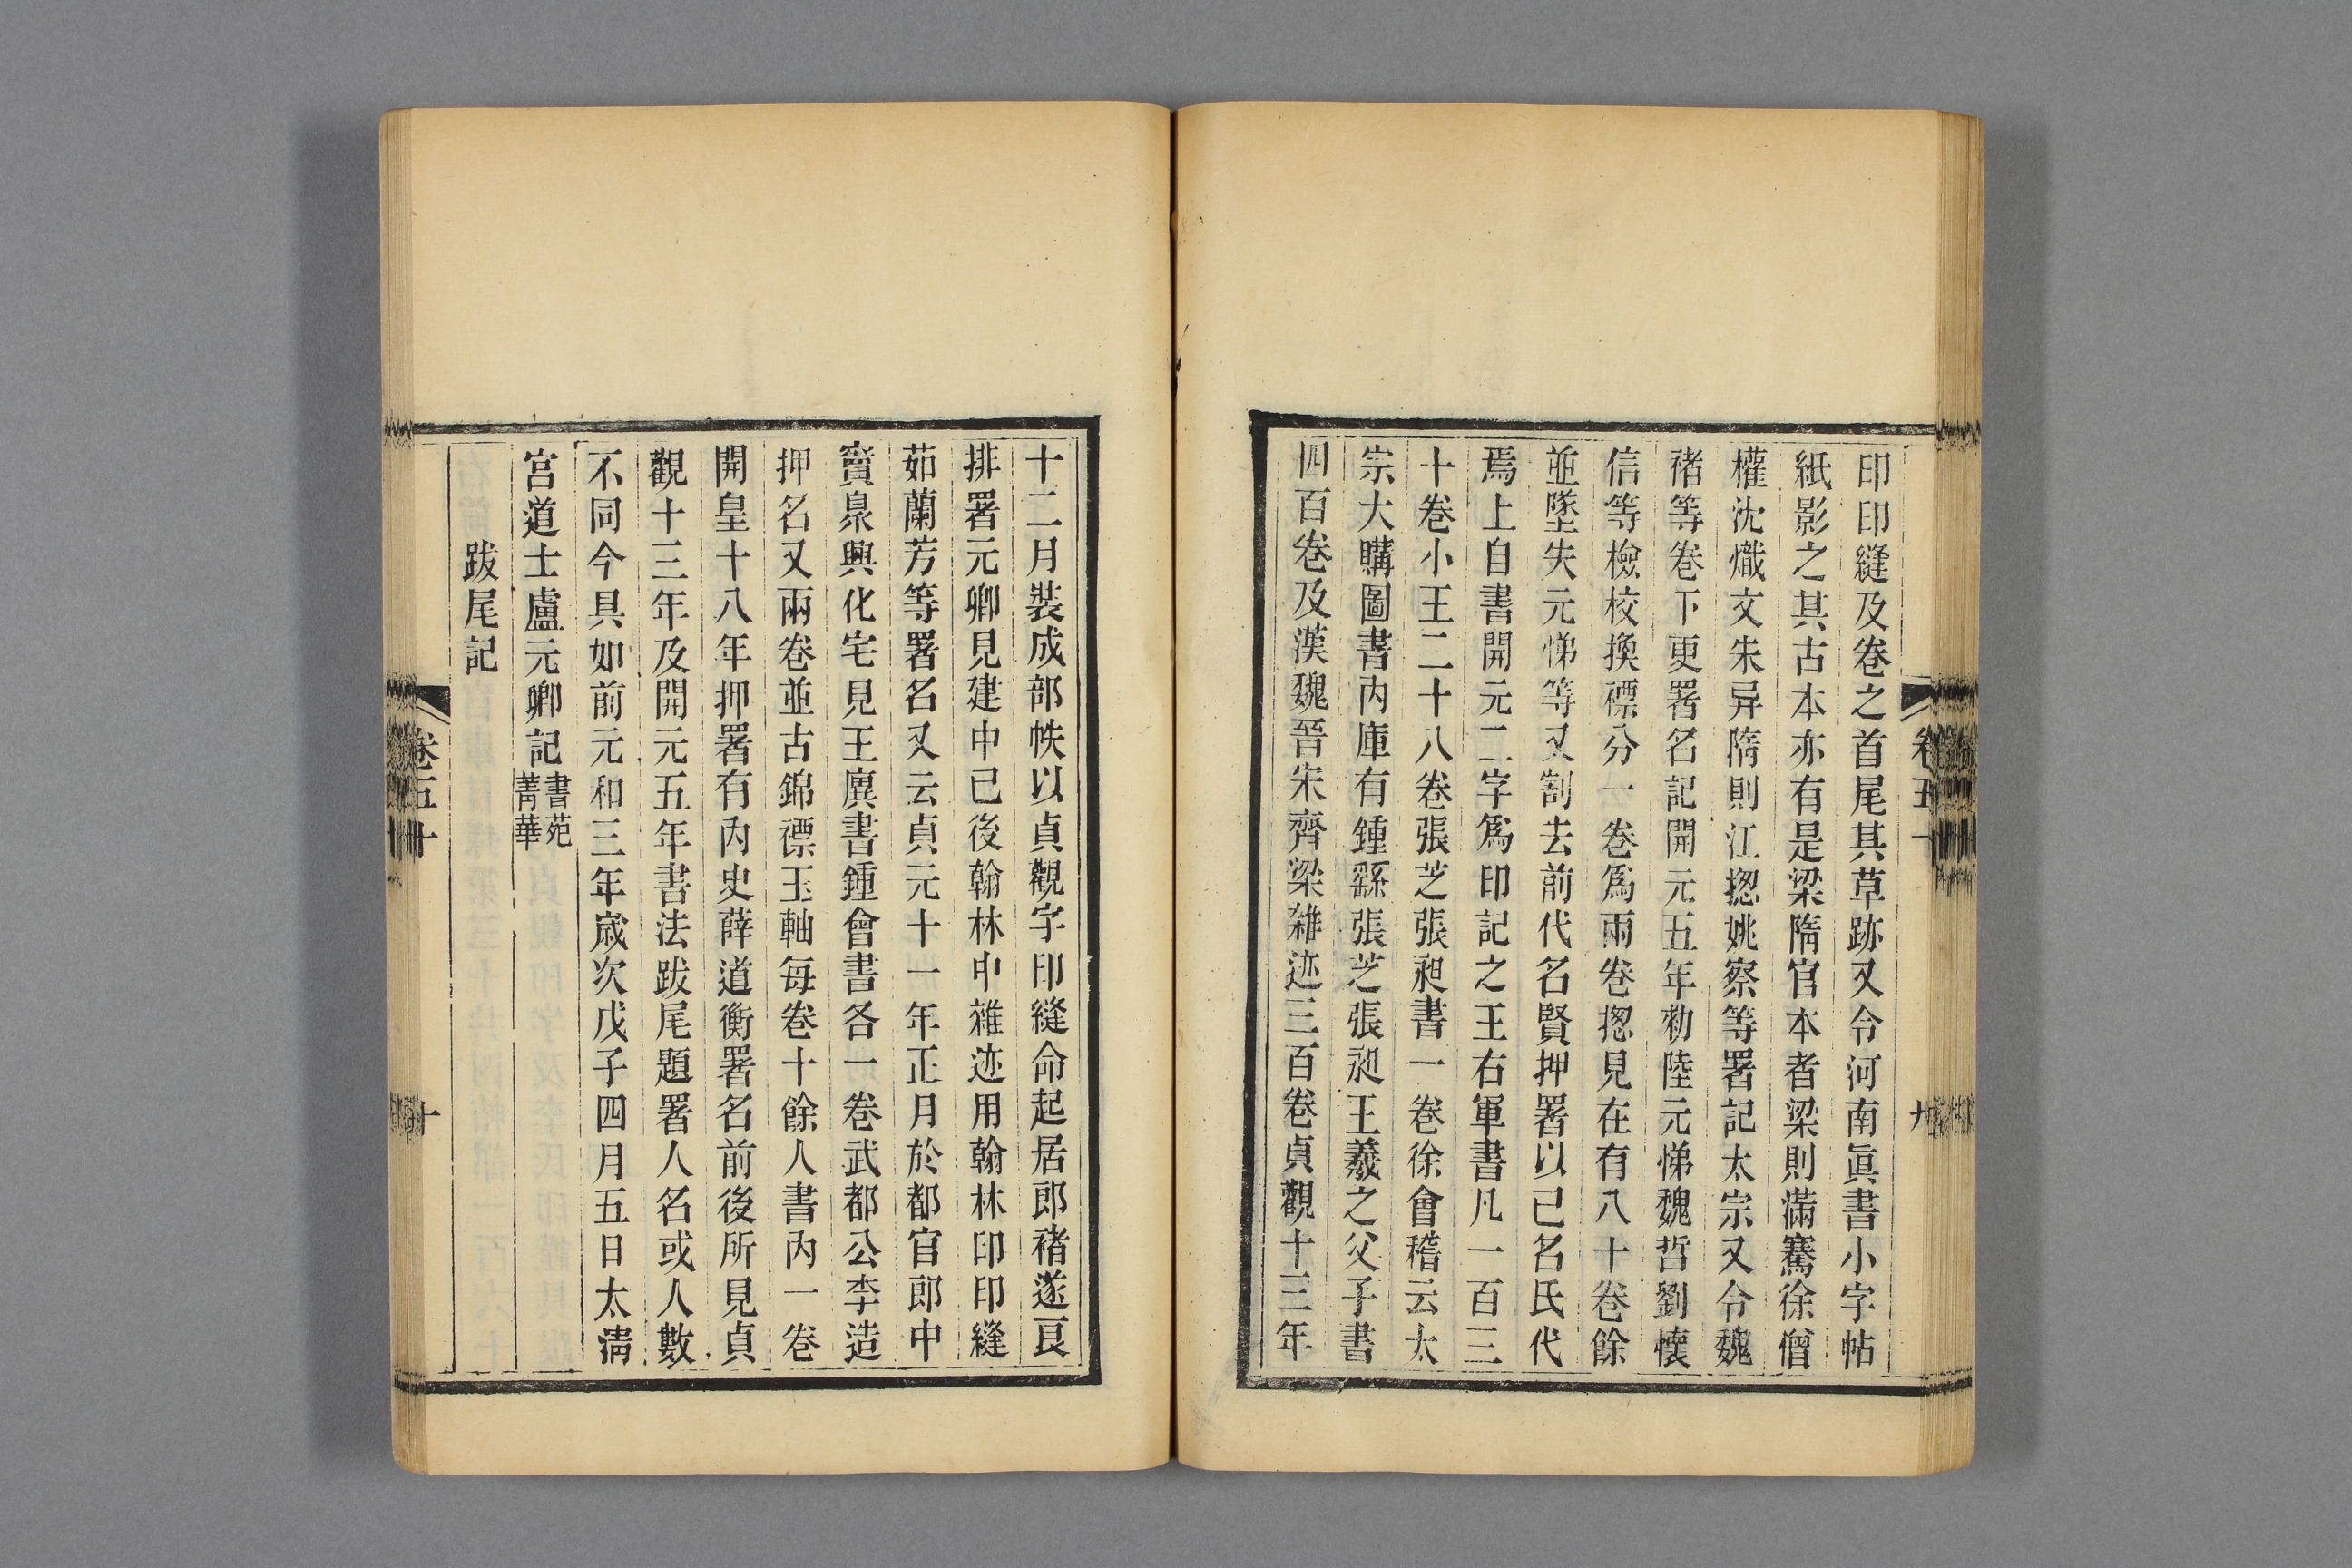 印印縫及卷之首尾其草跡又令河南眞書小字帖
紙影之其古本亦有是梁隋官本者梁則滿騫徐僧
權沈熾文朱异隋則江揔姚察等署記太宗又令魏
褚等卷下更署名記開元五年勑陸元悌魏哲劉懷
信等檢校換褾分一卷爲兩卷揔見在有八十卷餘
並墜失元悌等又割去前代名賢押署以己名氏代
焉上自書開元二字爲印記之王右軍書凡一百三
十卷小王二十八卷張芝張昶書一卷徐會稽云太
宗大購圖書內庫有鍾繇張芝張昶王羲之父子書
四百卷及漢魏晉宋齊梁雜迹三百卷貞觀十三年
卷五十
九
十二月裝成部帙以貞觀字印縫命起居郎褚遂良
排署元卿見建中已後翰林中雜迹用翰林印印縫
茹蘭芳等署名又云貞元十一年正月於都官郎中
竇臮興化宅見王廙書鍾會書各一卷武都公李造
押名又兩卷並古錦褾玉軸每卷十餘人書內一卷
開皇十八年押署有內史薛道衡署名前後所見貞
觀十三年及開元五年書法跋尾題署人名或人數
不同今具如前元和三年歲次戊子四月五日太淸
宮道士盧元卿記書苑菁華
跋尾記
卷五十
十